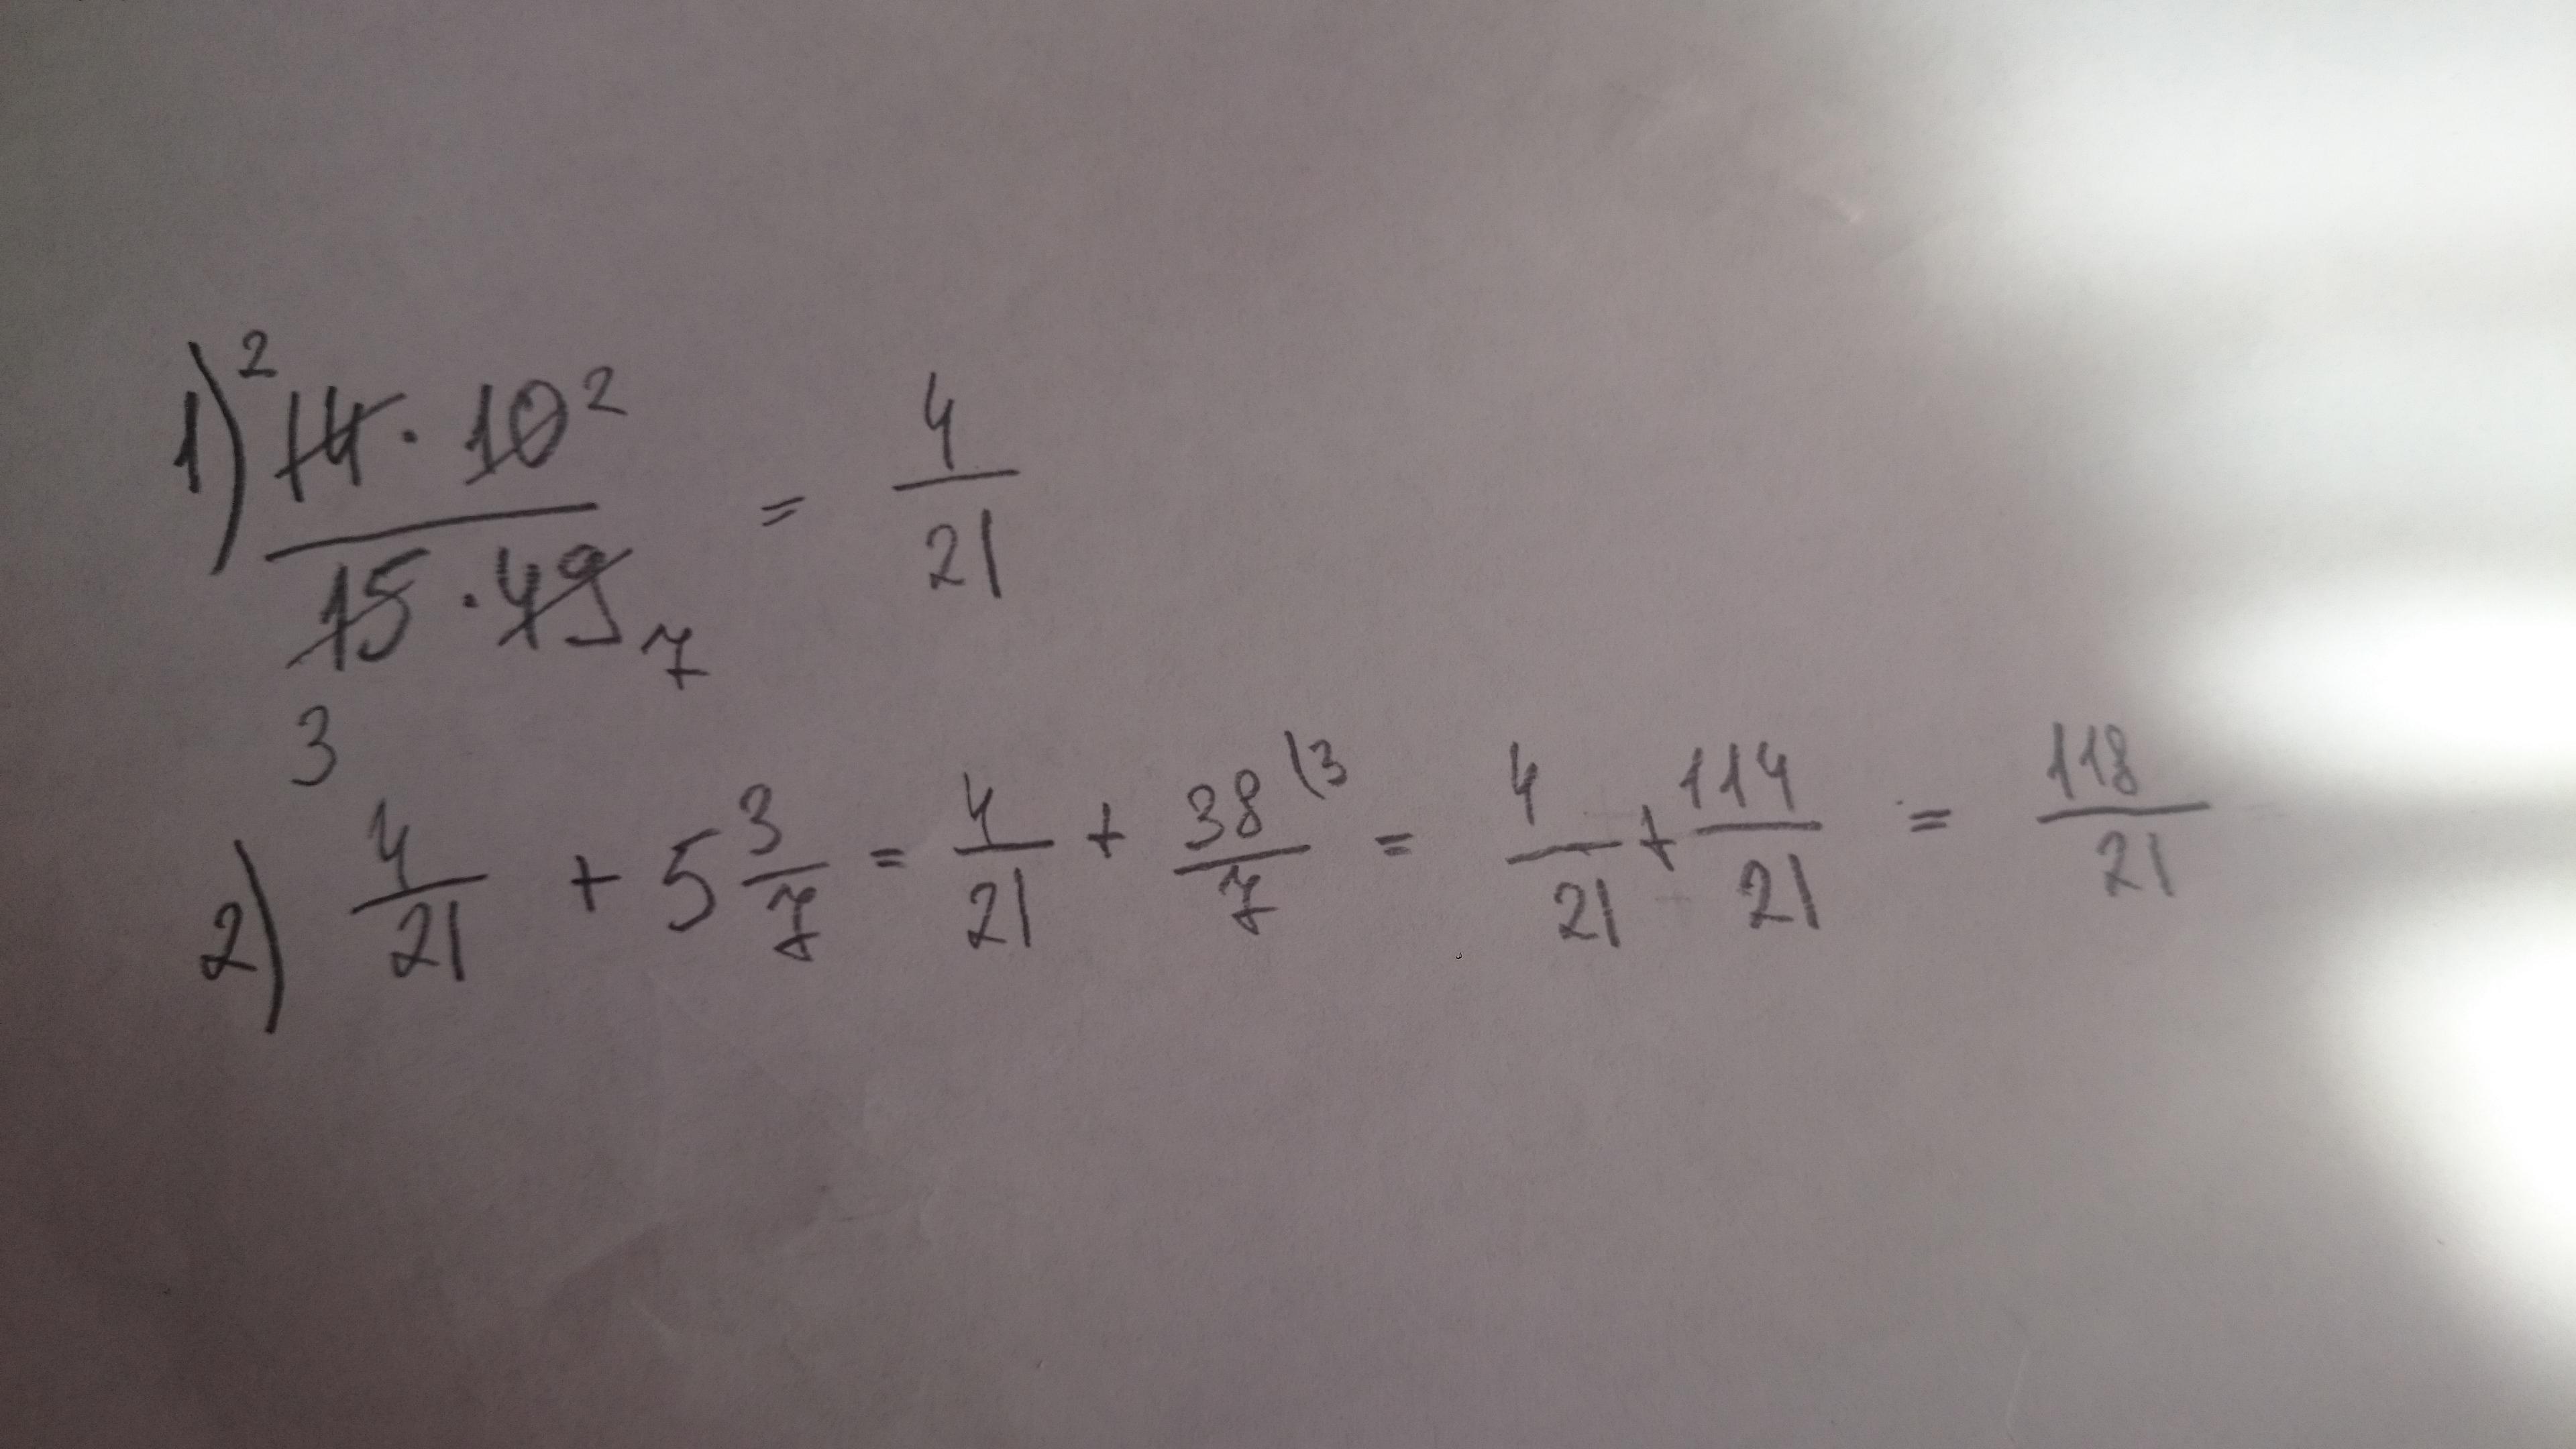 1) ²14 · 10² / 15 · 49 = 4/21
3 7
2) 4/21 + 5 3/7 = 4/21 + 38\3/7 = 4/21 + 114/21 = 118/21